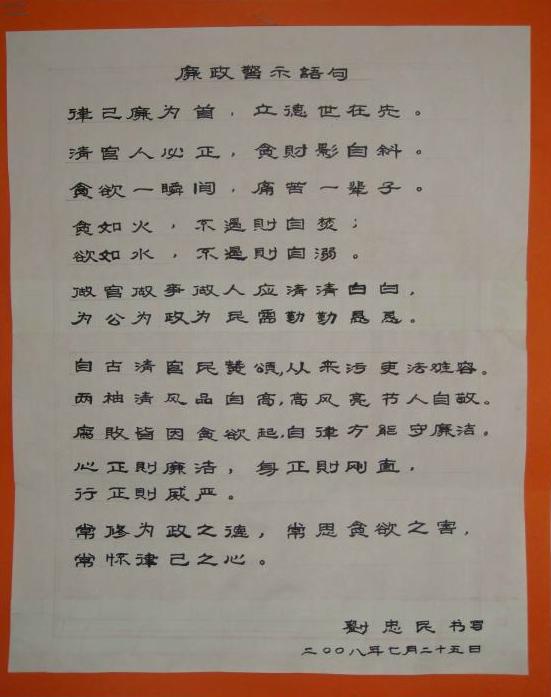 廉政警示語句
律己廉为首，立德世在先。
清官人必正，貪財影自斜。
貪欲一瞬间，痛苦一辈子。
貪如火，不遏則自焚；
欲如水，不遏則自溺。
做官做事做人应清清白白，
为公为政为民需勤勤恳恳。
自古清官民赞頌,从来污吏法难容。
两袖清风品自高,高风亮节人自敬。
腐敗皆因貪欲起,自律方能守廉洁。
心正則廉洁，身正則刚直，
行正則威严。
常修为政之德，常思貪欲之害，
常怀律己之心。
劉忠民书写
二〇〇八年七月二十五日